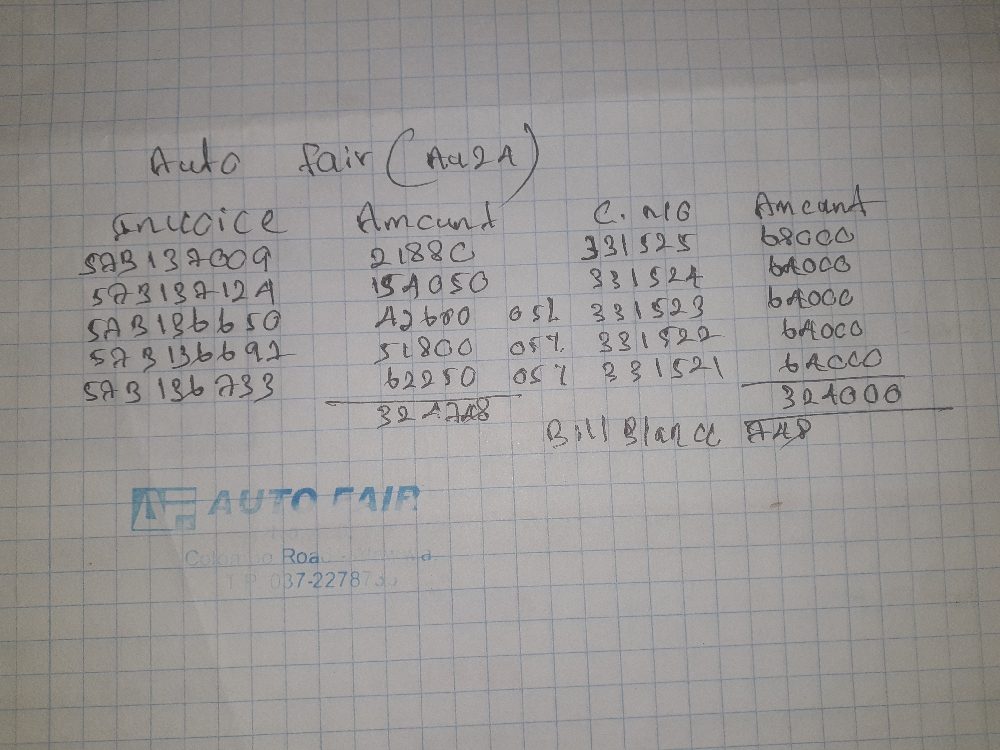 Auto fair
Invoice Amount C. NO Amount
573137009 21880 331525 68000
573137124 154050 331524 64000
573136650 42600 05% 331523 64000
573136697 51800 05% 331522 64000
573136733 62250 05% 331521 64000
324748 324000
Bill Blance 748
AUTO FAIR
Road
037-2278